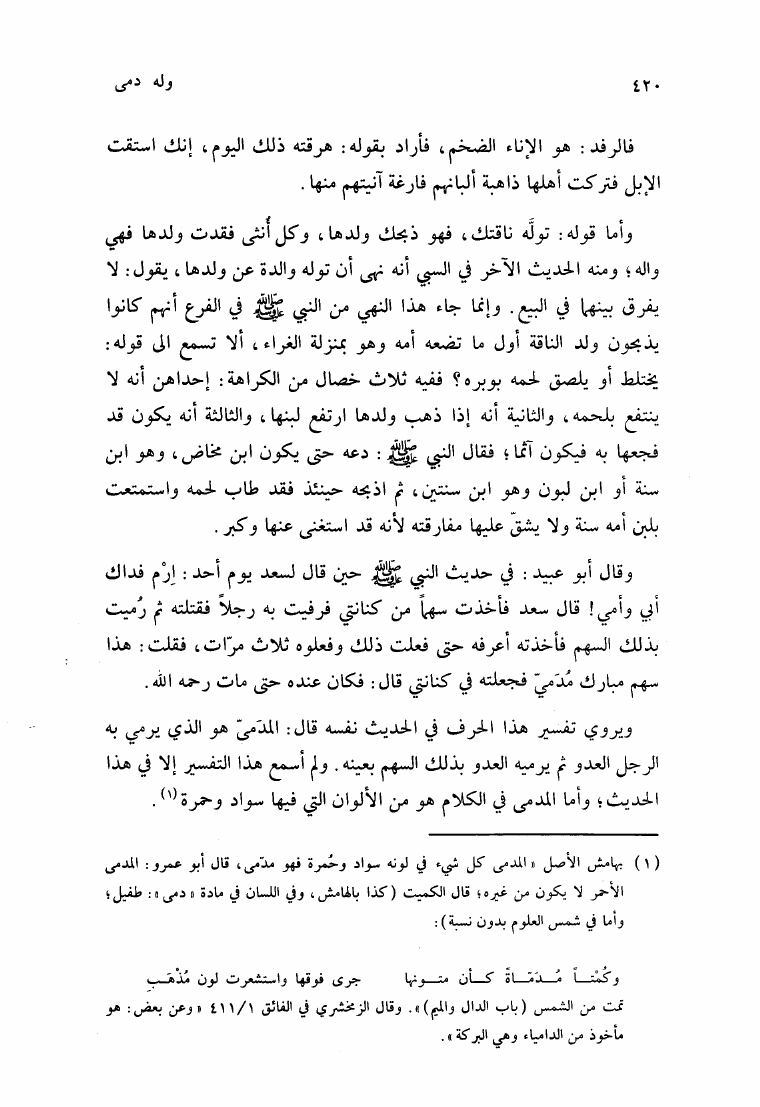 ٤٢٠
وله دمى
فالرفد: هو الإناء الضخم، فأراد بقوله: هرقته ذلك اليوم، إنك استقت
الإبل فتركت أهلها ذاهبة ألبانهم فارغة آنيتهم منها.
وأما قوله: تولَّه ناقتك، فهو ذبحك ولدها، وكل أُنثى فقدت ولدها فهي
واله؛ ومنه الحديث الآخر في السبي أنه نهى أن توله والدة عن ولدها، يقول: لا
يفرق بينهما في البيع. وإنما جاء هذا النهي من النبي ﷺ في الفرع أنهم كانوا
يذبحون ولد الناقة أول ما تضعه أمه وهو بمنزلة الغراء، ألا تسمع الى قوله:
يختلط أو يلصق لحمه بوبره؟ ففيه ثلاث خصال من الكراهة: إحداهن أنه لا
ينتفع بلحمه، والثانية أنه إذا ذهب ولدها ارتفع لبنها، والثالثة أنه يكون قد
فجعها به فيكون آثما؛ فقال النبي ﷺ : دعه حتى يكون ابن مخاض، وهو ابن
سنة أو ابن لبون وهو ابن سنتين، ثم اذبحه حينئذ فقد طاب لحمه واستمتعت
بلبن أمه سنة ولا يشقّ عليها مفارقته لأنه قد استغنى عنها وكبر.
وقال أبو عبيد: في حديث النبي ﷺ حين قال لسعد يوم أحد: اِرْم فداك
أبي وأمي! قال سعد فأخذت سهماً من كنانتي فرفيت به رجلاً فقتلته ثم رُميت
بذلك السهم فأخذته أعرفه حتى فعلت ذلك وفعلوه ثلاث مرّات، فقلت: هذا
سهم مبارك مُدَميّ فجعلته في كنانتي قال: فكان عنده حتى مات رحمه الله.
ويروي تفسير هذا الحرف في الحديث نفسه قال: المدَميّ هو الذي يرمي به
الرجل العدو ثم يرميه العدو بذلك السهم بعينه. ولم أسمع هذا التفسير إلا في هذا
الحديث؛ وأما المدمى في الكلام هو من الألوان التي فيها سواد وحمرة(١).
(١) بهامش الأصل «المدمى كل شيء في لونه سواد وحُمرة فهو مدّمى، قال أبو عمرو: المدمى
الأحمر لا يكون من غيره؛ قال الكميت (كذا بالهامش، وفي اللسان في مادة «دمى»: طفيل؛
وأما في شمس العلوم بدون نسبة):
وكُمْتــاً مُــدَمّــاةً كــأن متــونها جرى فوقها واستشعرت لون مُذْهَــبِ
تمت من الشمس (باب الدال والميم)». وقال الزمخشري في الفائق ٤١١/١ «وعن بعض: هو
مأخوذ من الدامياء وهي البركة».